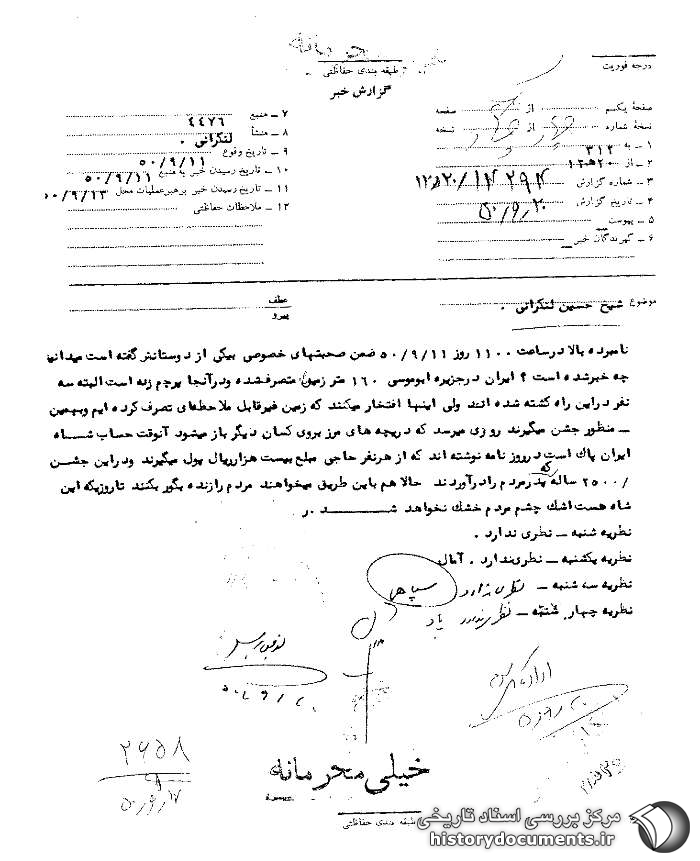 درجه فوریت
طبقه بندی حفاظتی
گزارش خبر
صفحهٔ یکم از صفحه
نسخهٔ شماره از نسخه
۱ ـ به ۳۱۲
۲ ـ از ۲۰ه‍۱۲
۳ ـ شماره گزارش ۱۲ه‍۲۰/۱۴۲۹۴
۴ ـ تاریخ گزارش ۵۰/۹/۲۰
۵ ـ پیوست
۶ ـ گیرندگان خبر
۷ ـ منبع ۴۴۷۶
۸ ـ منشأ لنکرانی .
۹ ـ تاریخ وقوع ۵۰/۹/۱۱
۱۰ ـ تاریخ رسیدن خبر به منبع ۵۰/۹/۱۱
۱۱ ـ تاریخ رسیدن خبر برهبرعملیات محل ۵۰/۹/۱۳
۱۲ ـ ملاحظات حفاظتی
موضوع شیخ حسین لنکرانی .
عطف
پیرو
نامبرده بالا درساعت ۱۱۰۰ روز ۵۰/۹/۱۱ ضمن صحبتهای خصوصی بیکی از دوستانش گفته است میدانید
چه خبرشده است ؟ ایران درجزیره ابوموسی ۱۶۰ متر زمین متصرفشده ودرآنجا پرچم زده است البته سه
نفر دراین راه کشته شده اند ولی اینها افتخار میکنند که زمین غیرقابل ملاحظه‌ای تصرف کرده ایم وبهمین
ـ منظور جشن میگیرند روزی میرسد که دریچه های مرز بروی کسان دیگر باز میشود آنوقت حساب شــاه
ایران پاک است درروز نامه نوشته اند که از هرنفر حاجی مبلغ بیست هزارریال پول میگیرند ودراین جشــن
/۲۵۰۰ ساله که پدرمردم رادرآوردند حالا هم باین طریق میخواهند مردم رازنده بگور بکنند تاروزیکه این
شاه هست اشک چشم مردم خشک نخواهد شــــد . ر
نظریه شنبه ـ نظری ندارد .
نظریه یکشنبه ـ نظری ندارد . آمال
نظریه سه شنبه ـ نظری ندارد سپاهی
نظریه چهار شنبه ـ نظری ندارد
۵۰/۹/۲۰
۲۶۵۸
خیلی محرمانه
طبقه بندی حفاظتی
مرکز بررسی اسناد تاریخی
historydocuments.ir